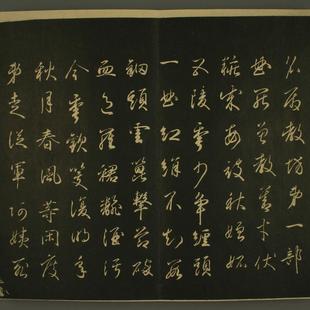 名屬教坊第一部
曲罷曾教善才伏
粧成每被秋娘妬
五陵年少爭纏頭
一曲紅綃不知數
鈿頭雲篦擊節碎
血色羅裙翻酒污
今年歡笑復明年
秋月春風等閑度
弟走從軍阿姨死